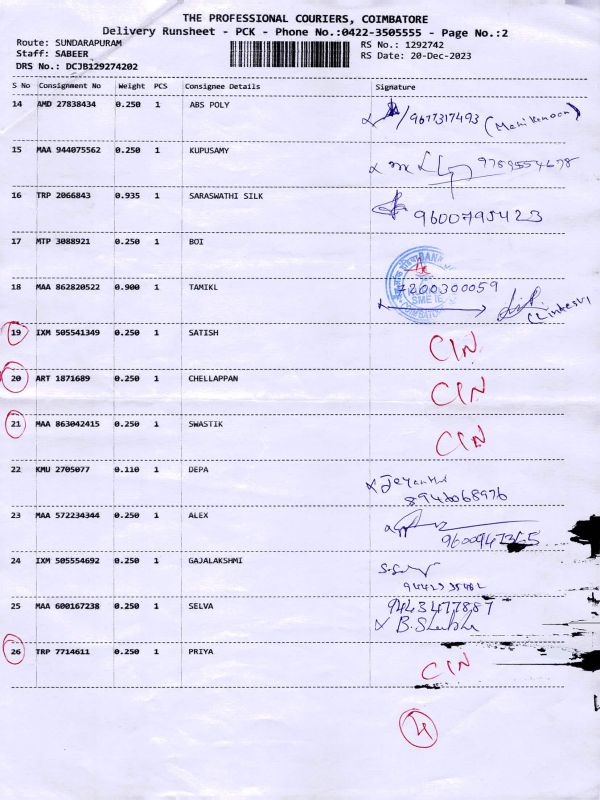 THE PROFESSIONAL COURIERS, COIMBATORE
Delivery Runsheet - PCK - Phone No.:0422-3505555 - Page No.:2
Route: SUNDARAPURAM RS No.: 1292742
Staff: SABEER RS Date: 20-Dec-2023
DRS No.: DCJB129274202
S No Consignment No Weight PCS Consignee Details Signature
14 AMD 27838434 0.250 1 ABS POLY
15 MAA 944075562 0.250 1 KUPUSAMY
16 TRP 2066843 0.935 1 SARASWATHI SILK 9600795423
17 MTP 3088921 0.250 1 BOI
BANK
SME
18 MAA 862820522 0.900 1 TAMIKL 7200300059
19 IXM 505541349 0.250 1 SATISH CIN
20 ART 1871689 0.250 1 CHELLAPPAN CIN
21 MAA 863042415 0.250 1 SWASTIK CIN
22 KMU 2705077 0.110 1 DEPA
8940068976
23 MAA 572234344 0.250 1 ALEX
24 IXM 505554692 0.250 1 GAJALAKSHMI
25 MAA 600167238 0.250 1 SELVA 9443477887
26 TRP 7714611 0.250 1 PRIYA CIN
4